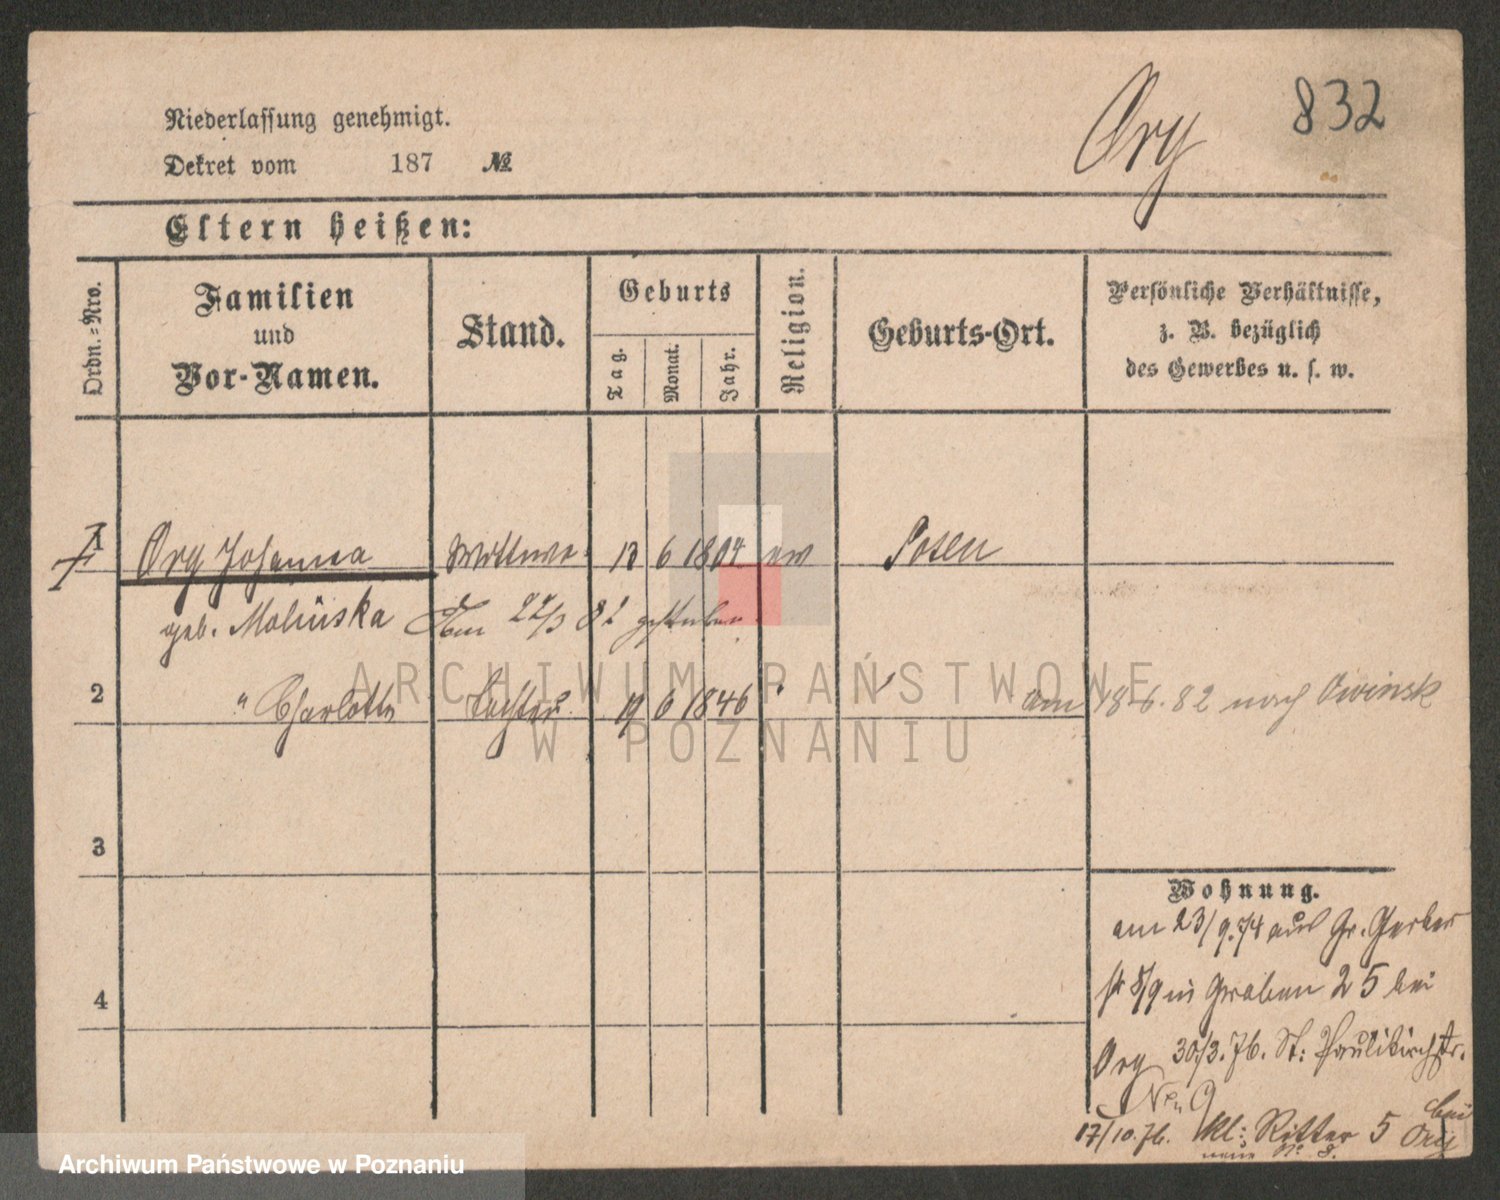 Org 832
Niederlassung genehmigt.
Dekret vom 187 №
Eltern heißen:
Ordn.-Nro.
Familien
und
Vor-Namen.
Stand.
Geburts
Tag.
Monat.
Jahr.
Religion.
Geburts-Ort.
Persönliche Verhältnisse,
z. B. bezüglich
des Gewerbes u. s. w.
1 Org Johanna Wittwe 13 6 1804 ew Posen
geb. Molinska Am 22/3 82 gestorben
2 " Charlotte Tochter 19 6 1846 " " am 18.6.82 nach Owinsk
3
4
Wohnung.
am 23/9.74 aus Gr. Gerber
str 8/9 in Graben 25 bei
Org 30/3.76. St: Paulikirchstr.
No 9
17/10.76. kl: Ritter 5 bei Org
neue No 8.
ARCHIWUM PAŃSTWOWE
W POZNANIU
Archiwum Państwowe w Poznaniu